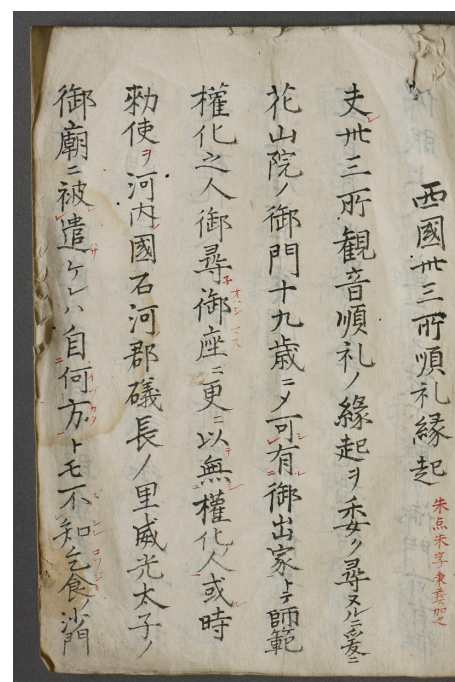 西國卅三所順礼縁起
朱点朱字
夫卅三所観音順礼ノ縁起ヲ委ク尋ヌルニ爰ニ
花山院ノ御門十九歳ニメ可有御出家トテ師範
權化之人御尋御座ニ更ニ以無權化人或時
勅使ヲ河内國石河郡礒長ノ里威光太子ノ
御廟ニ被遣ケレハ自何方トモ不知乞食ノ沙門